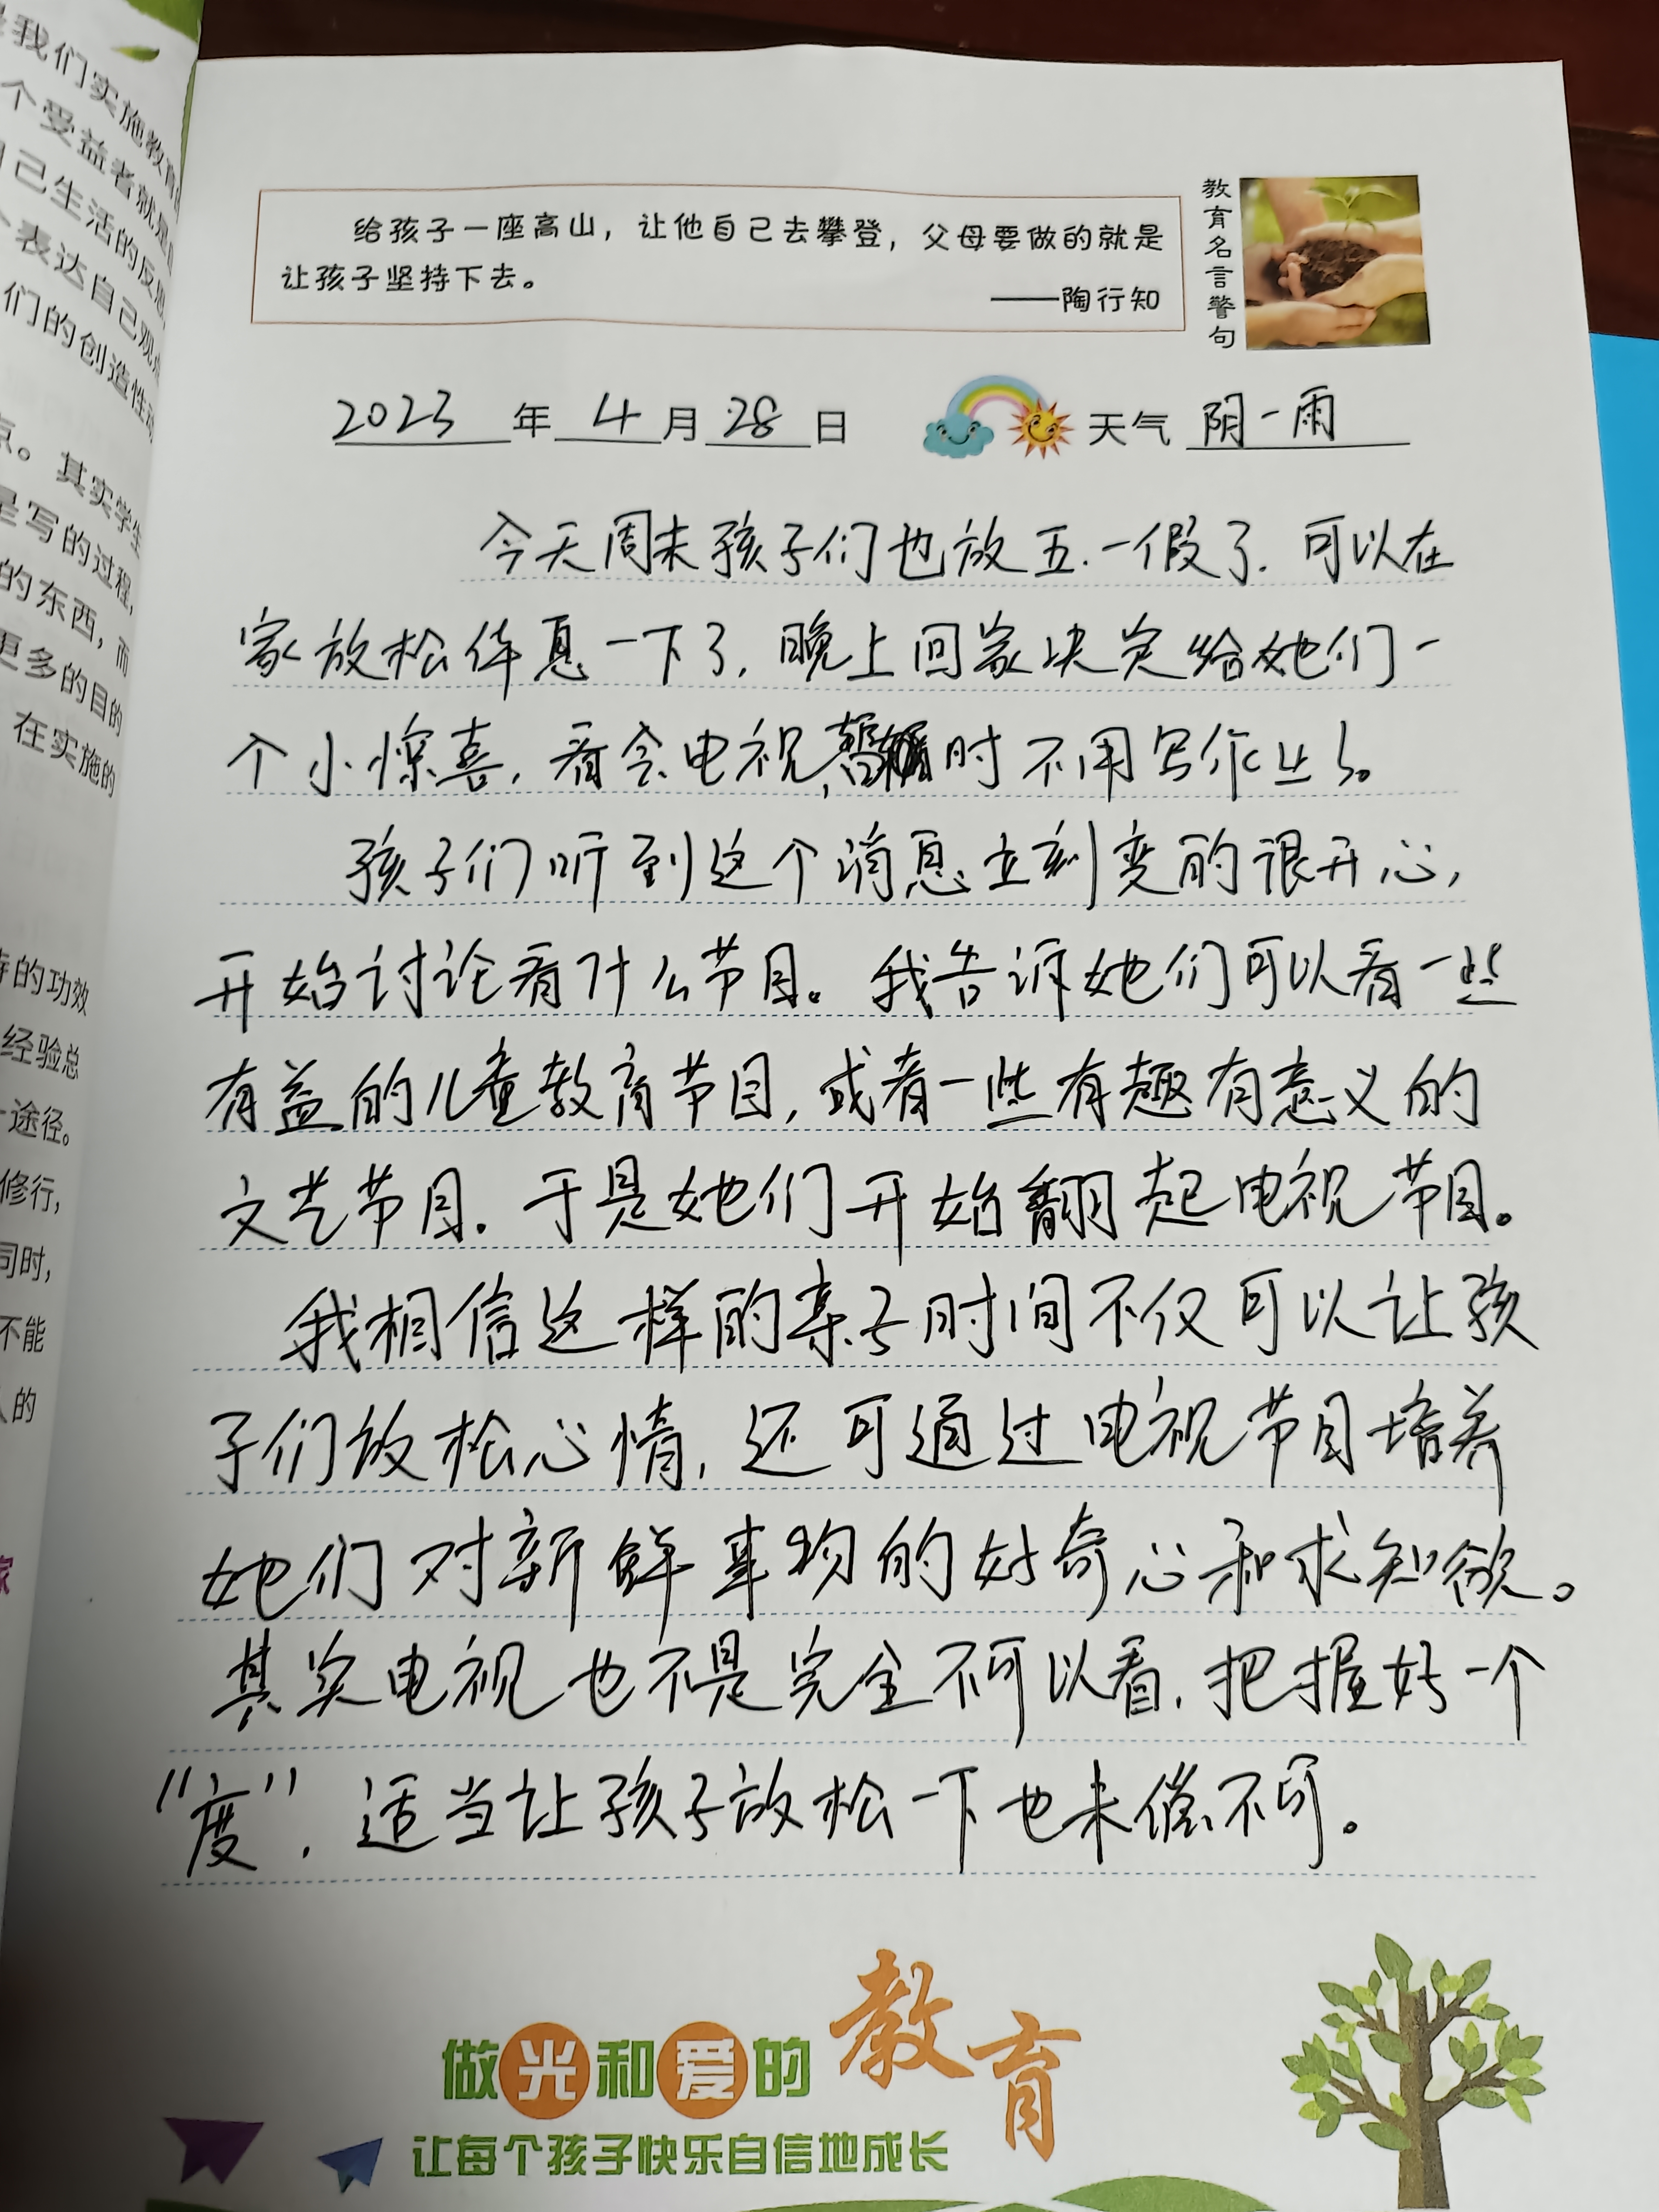 我们实施教育
个受益者就是
己生活的反思
表达自己观
们的创造性
点。其实学生
是写的过程,
的东西,而
更多的目的
在实施的
的功效
经验总
途径。
修行,
同时,
不能
人的
家
给孩子一座高山，让他自己去攀登，父母要做的就是
让孩子坚持下去。
——陶行知
教育名言警句
2023年4月28日 天气 阴-雨
今天周末孩子们也放五.一假了.可以在
家放松休息一下了,晚上回家决定给她们一
个小惊喜,看会电视,暂时不用写作业了。
孩子们听到这个消息立刻变的很开心,
开始讨论看什么节目。我告诉她们可以看一些
有益的儿童教育节目,或者一些有趣有意义的
文艺节目.于是她们开始翻起电视节目。
我相信这样的亲子时间不仅可以让孩
子们放松心情,还可通过电视节目培养
她们对新鲜事物的好奇心和求知欲。
其实电视也不是完全不可以看,把握好一个
"度",适当让孩子放松一下也未偿不可。
做光和爱的教育
让每个孩子快乐自信地成长